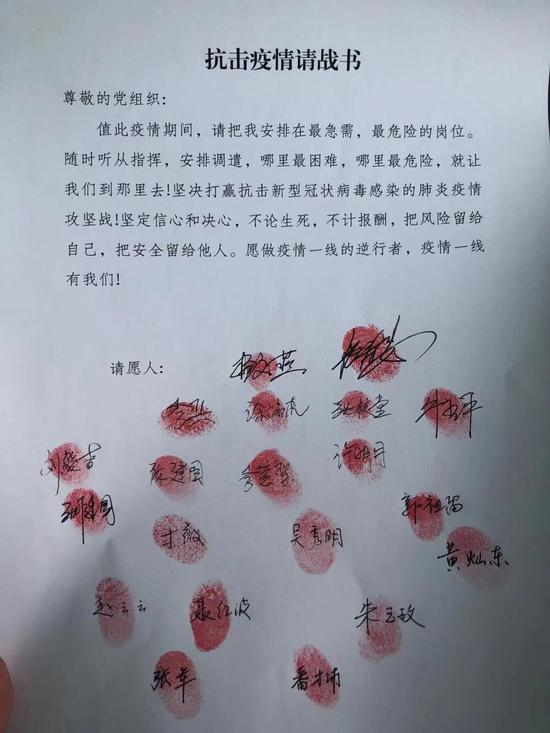 抗击疫情请战书
尊敬的党组织:
值此疫情期间，请把我安排在最急需，最危险的岗位。
随时听从指挥，安排调遣，哪里最困难，哪里最危险，就让
我们到那里去!坚决打赢抗击新型冠状病毒感染的肺炎疫情
攻坚战!坚定信心和决心，不论生死，不计报酬，把风险留给
自己，把安全留给他人。愿做疫情一线的逆行者，疫情一线
有我们!
请愿人:
张建国
许明月
郭祖强
才薇 吴秀明
黄灿东
赵云云 聂红波 朱玉敏
张军